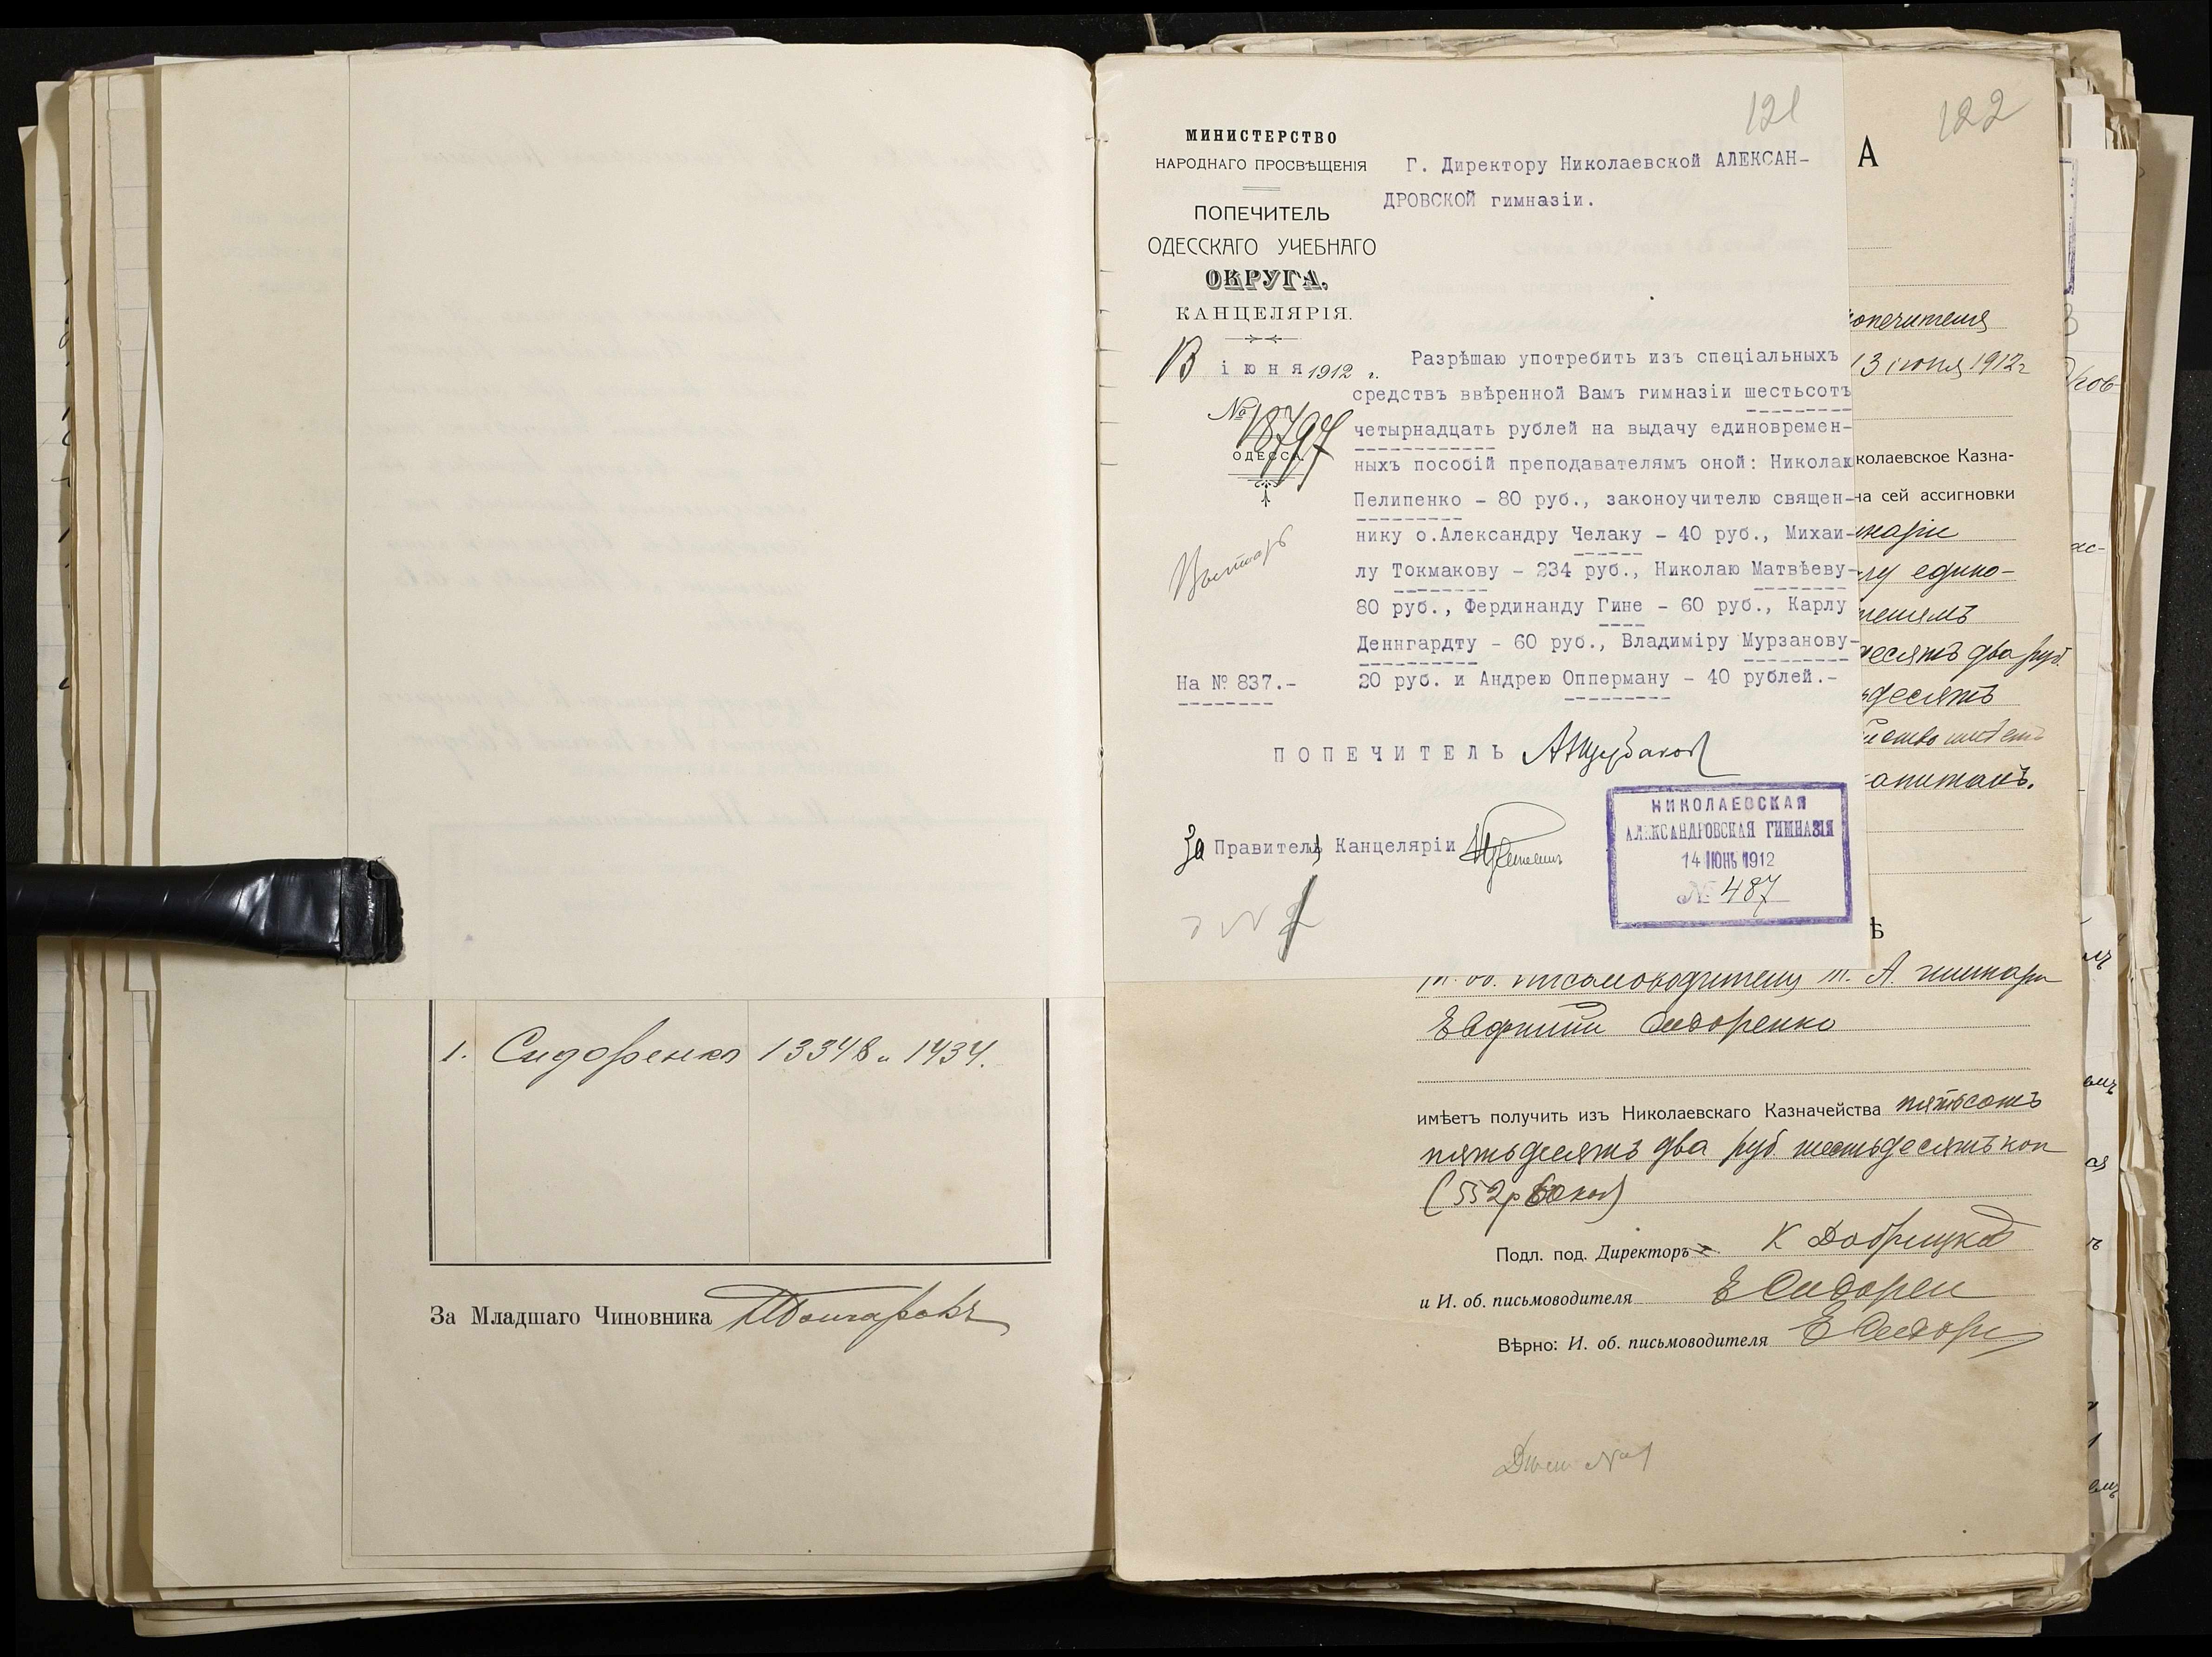 1. Сидоренко 13348 и 1434.
За Младшаго Чиновника
121
МИНИСТЕРСТВО
НАРОДНАГО ПРОСВѢЩЕНІЯ
ПОПЕЧИТЕЛЬ
ОДЕССКАГО УЧЕБНАГО
ОКРУГА,
КАНЦЕЛЯРІЯ.
13 іюня 1912 г.
№ 18797
ОДЕССА.
Г. Директору Николаевской АЛЕКСАН-
ДРОВСКОЙ гимназіи.
Разрѣшаю употребить изъ спеціальныхъ
средствъ ввѣренной Вамъ гимназіи шестьсотъ
четырнадцать рублей на выдачу единовремен-
ныхъ пособій преподавателямъ оной: Николаю
Пелипенко - 80 руб., законоучителю священ-
нику о.Александру Челаку - 40 руб., Михаи-
лу Токмакову - 234 руб., Николаю Матвѣеву-
80 руб., Фердинанду Гине - 60 руб., Карлу
Деннгардту - 60 руб., Владиміру Мурзанову-
20 руб. и Андрею Опперману - 40 рублей.-
На № 837.-
ПОПЕЧИТЕЛЬ
За Правителя Канцеляріи
НИКОЛАЕВСКАЯ
АЛЕКСАНДРОВСКАЯ ГИМНАЗІЯ
14 ІЮНЬ 1912
№ 487
122
А
опечителя
13 іюня 1912 г
колаевское Казна-
на сей ассигновки
едино-
десятъ два руб.
десятъ
Ѣ
И. об. письмоводителя Н. А. гимназіи
Евфимій Сидоренко
имѣетъ получить изъ Николаевскаго Казначейства пятьсотъ
пятьдесятъ два руб шестьдесятъ коп
(552р 60коп)
Подл. под. Директоръ
и И. об. письмоводителя Е Сидорен
Вѣрно: И. об. письмоводителя Е Сидорен